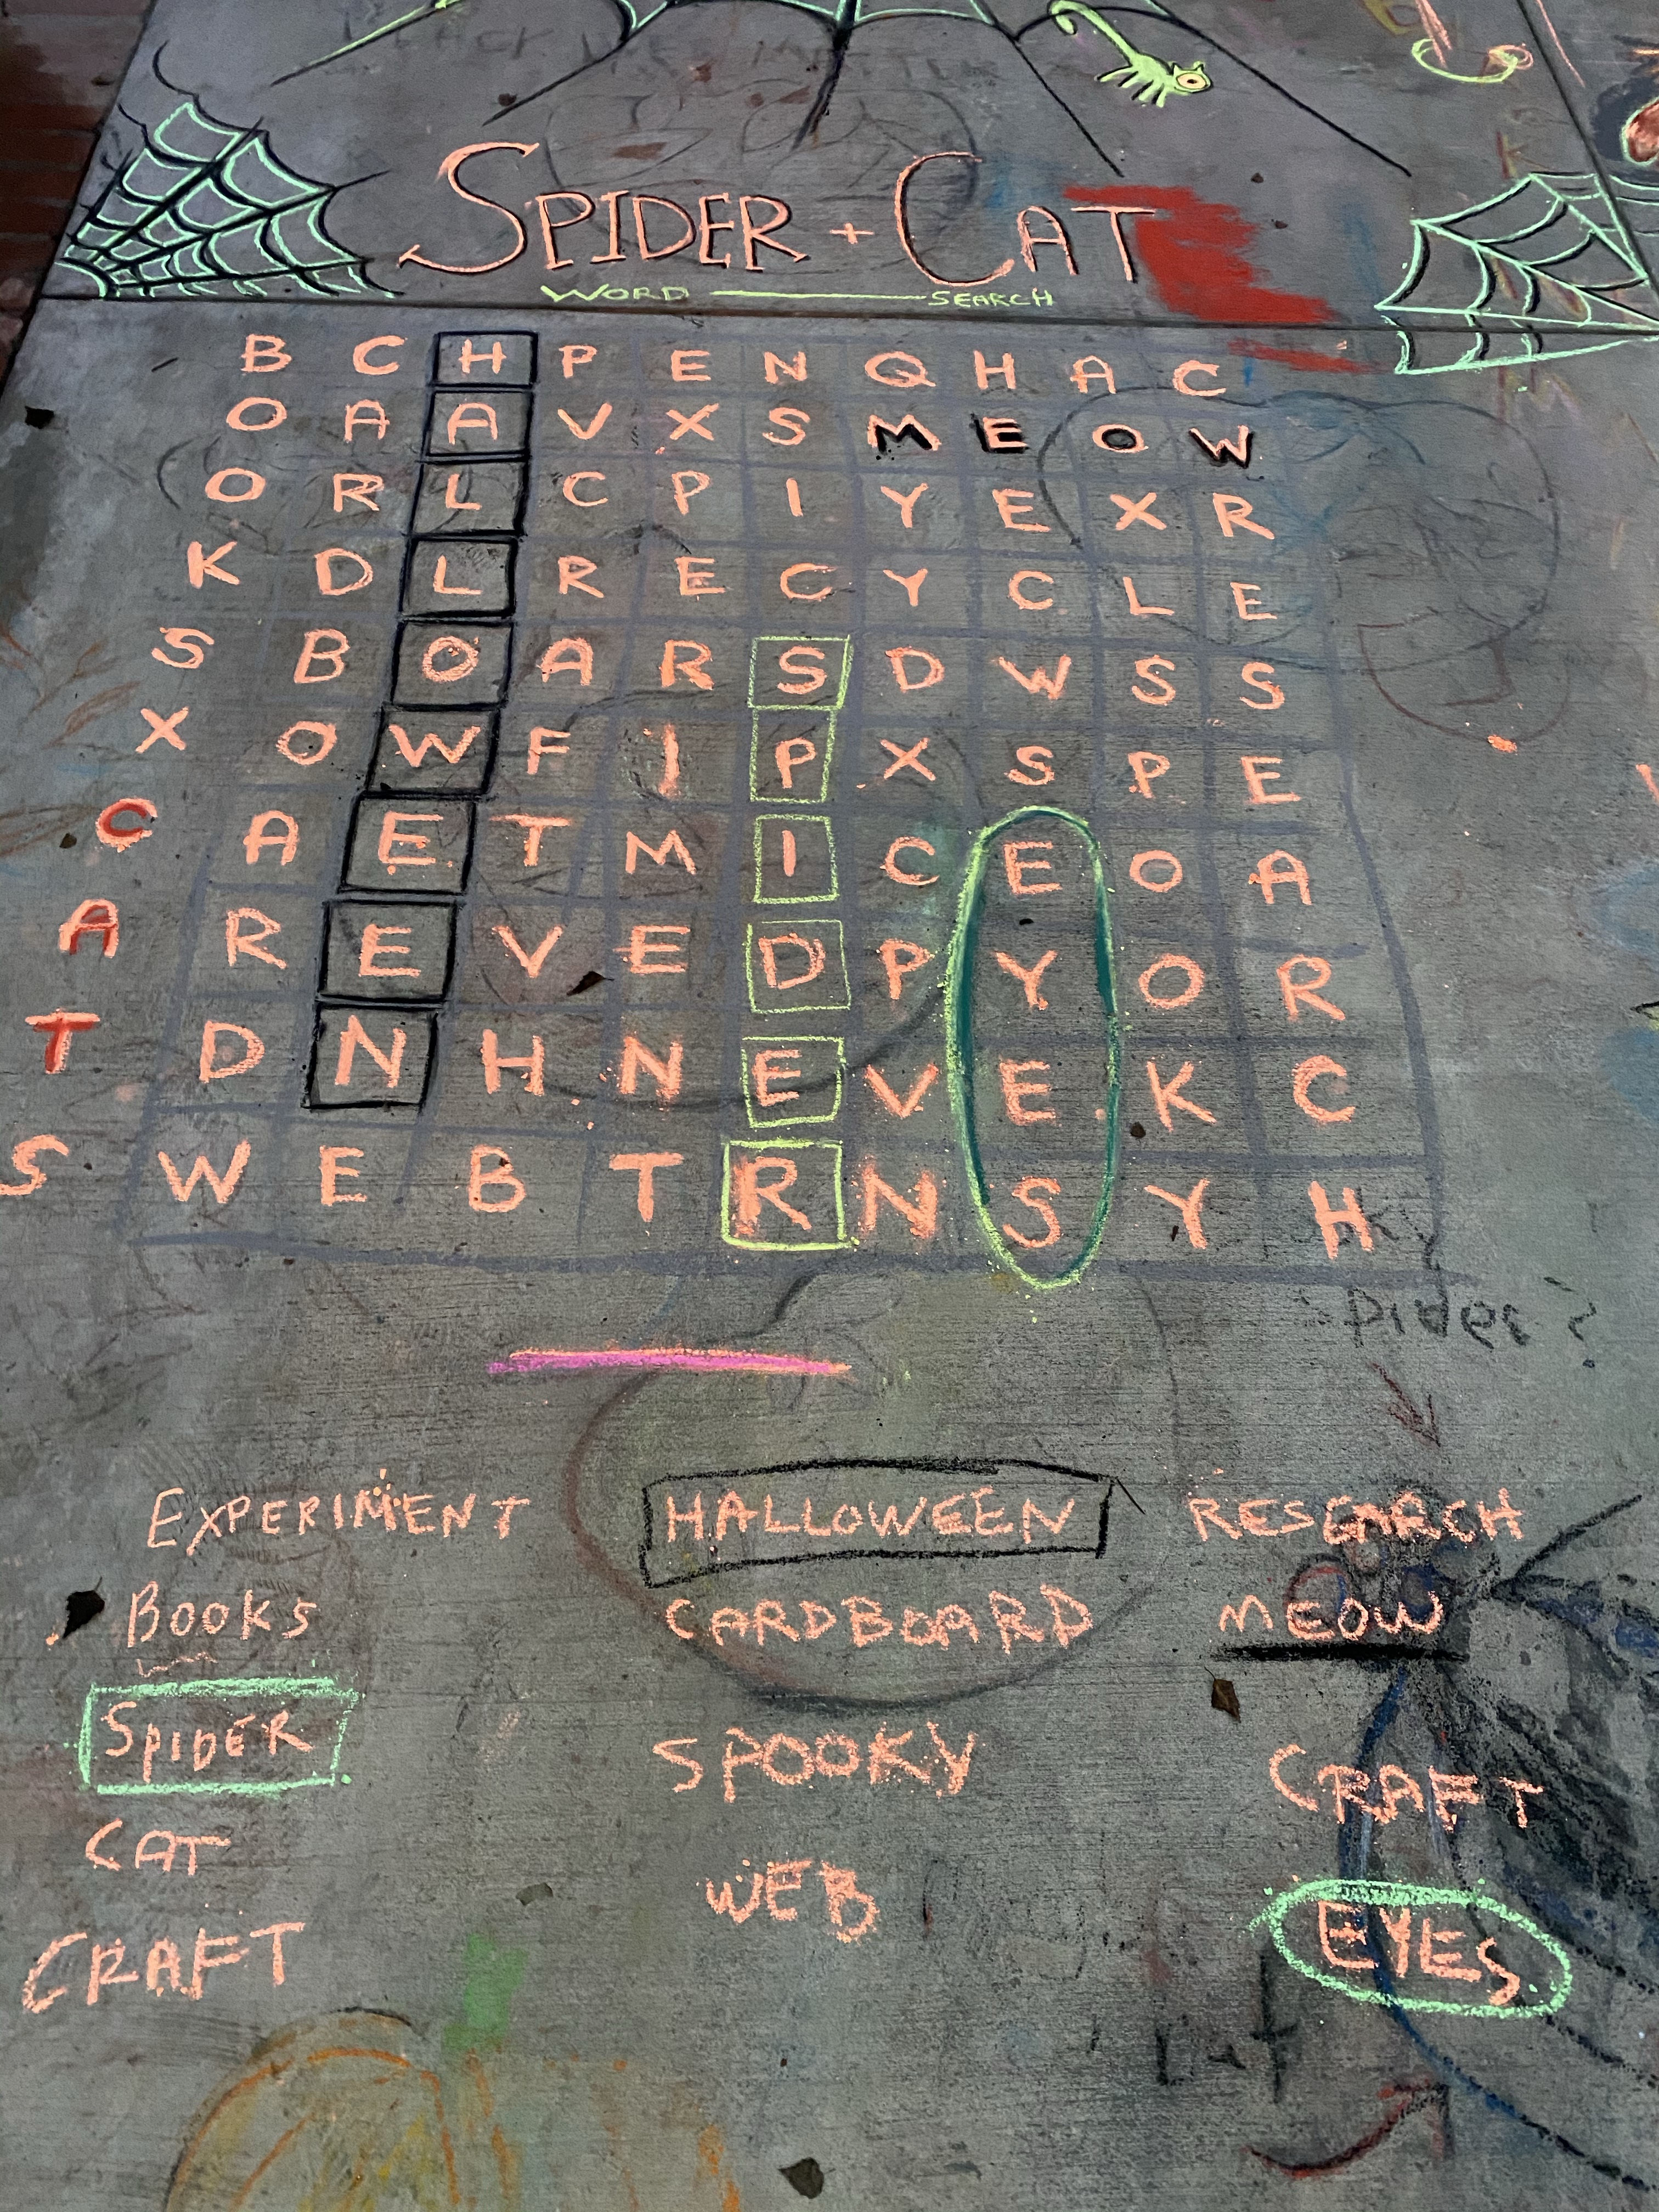 SPIDER + CAT
WORD SEARCH
B C H P E N Q H A C
O A A V X S M E O W
O R L C P I Y E X R
K D L R E C Y C L E
S B O A R S D W S S
X O W F I P X S P E
C A E T M I C E O A
A R E V E D P Y O R
T D N H N E V E K C
S W E B T R N S Y H
Pider?
EXPERIMENT HALLOWEEN RESEARCH
BOOKS CARDBOARD MEOW
SPIDER SPOOKY CRAFT
CAT WEB EYES
CRAFT